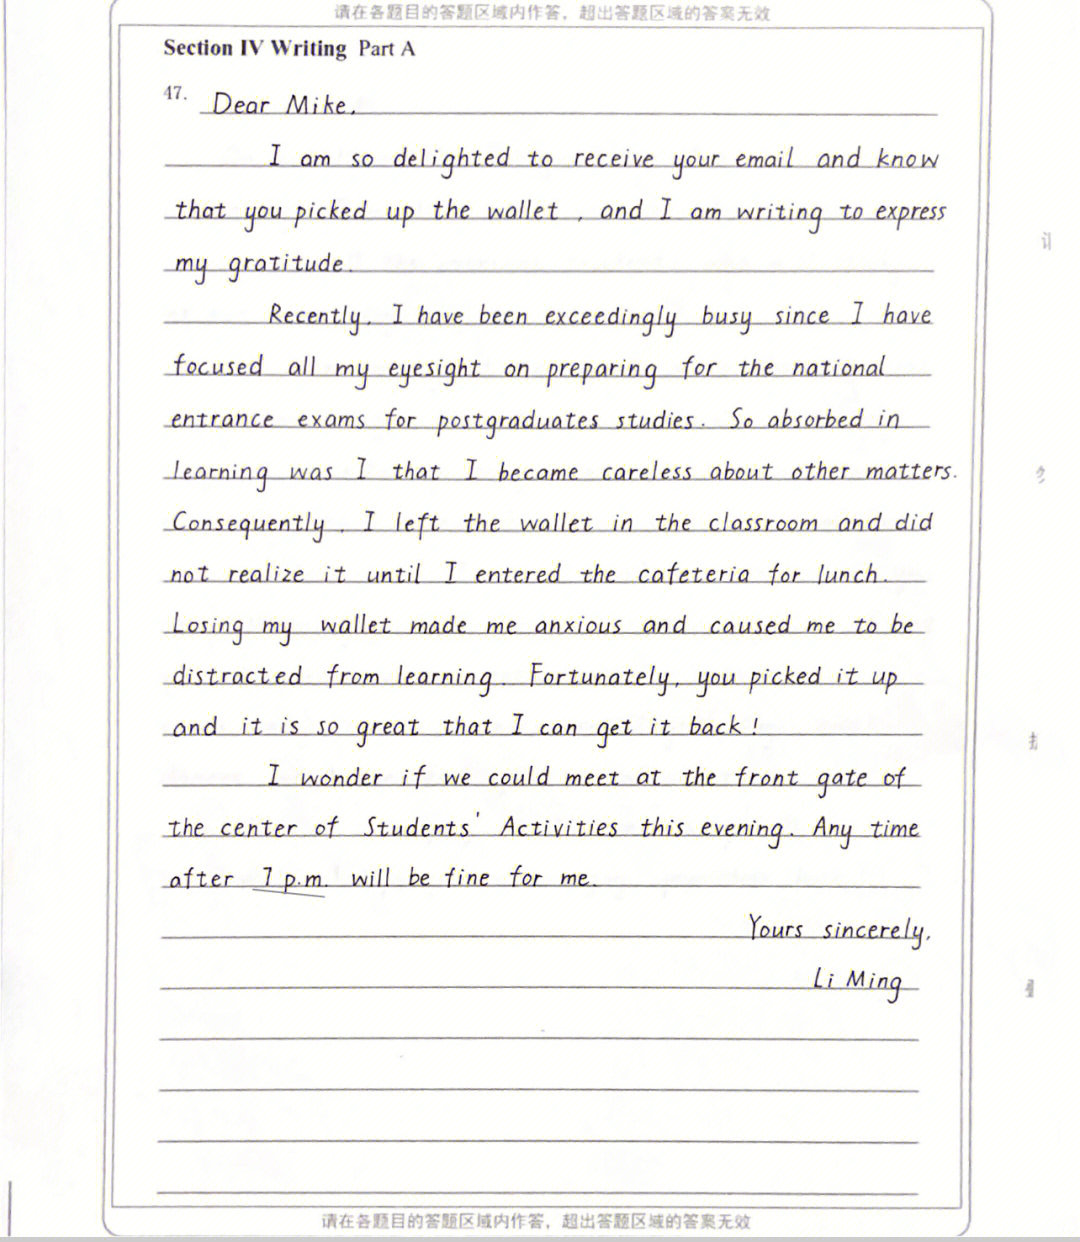 请在各题目的答题区域内作答，超出答题区域的答案无效
Section IV Writing Part A
47. Dear Mike,
I am so delighted to receive your email and know
that you picked up the wallet , and I am writing to express
my gratitude.
Recently, I have been exceedingly busy since I have
focused all my eyesight on preparing for the national
entrance exams for postgraduates studies. So absorbed in
learning was I that I became careless about other matters.
Consequently , I left the wallet in the classroom and did
not realize it until I entered the cafeteria for lunch.
Losing my wallet made me anxious and caused me to be
distracted from learning. Fortunately, you picked it up
and it is so great that I can get it back!
I wonder if we could meet at the front gate of
the center of Students' Activities this evening. Any time
after 7 p.m. will be fine for me.
Yours sincerely,
Li Ming
请在各题目的答题区域内作答，超出答题区域的答案无效